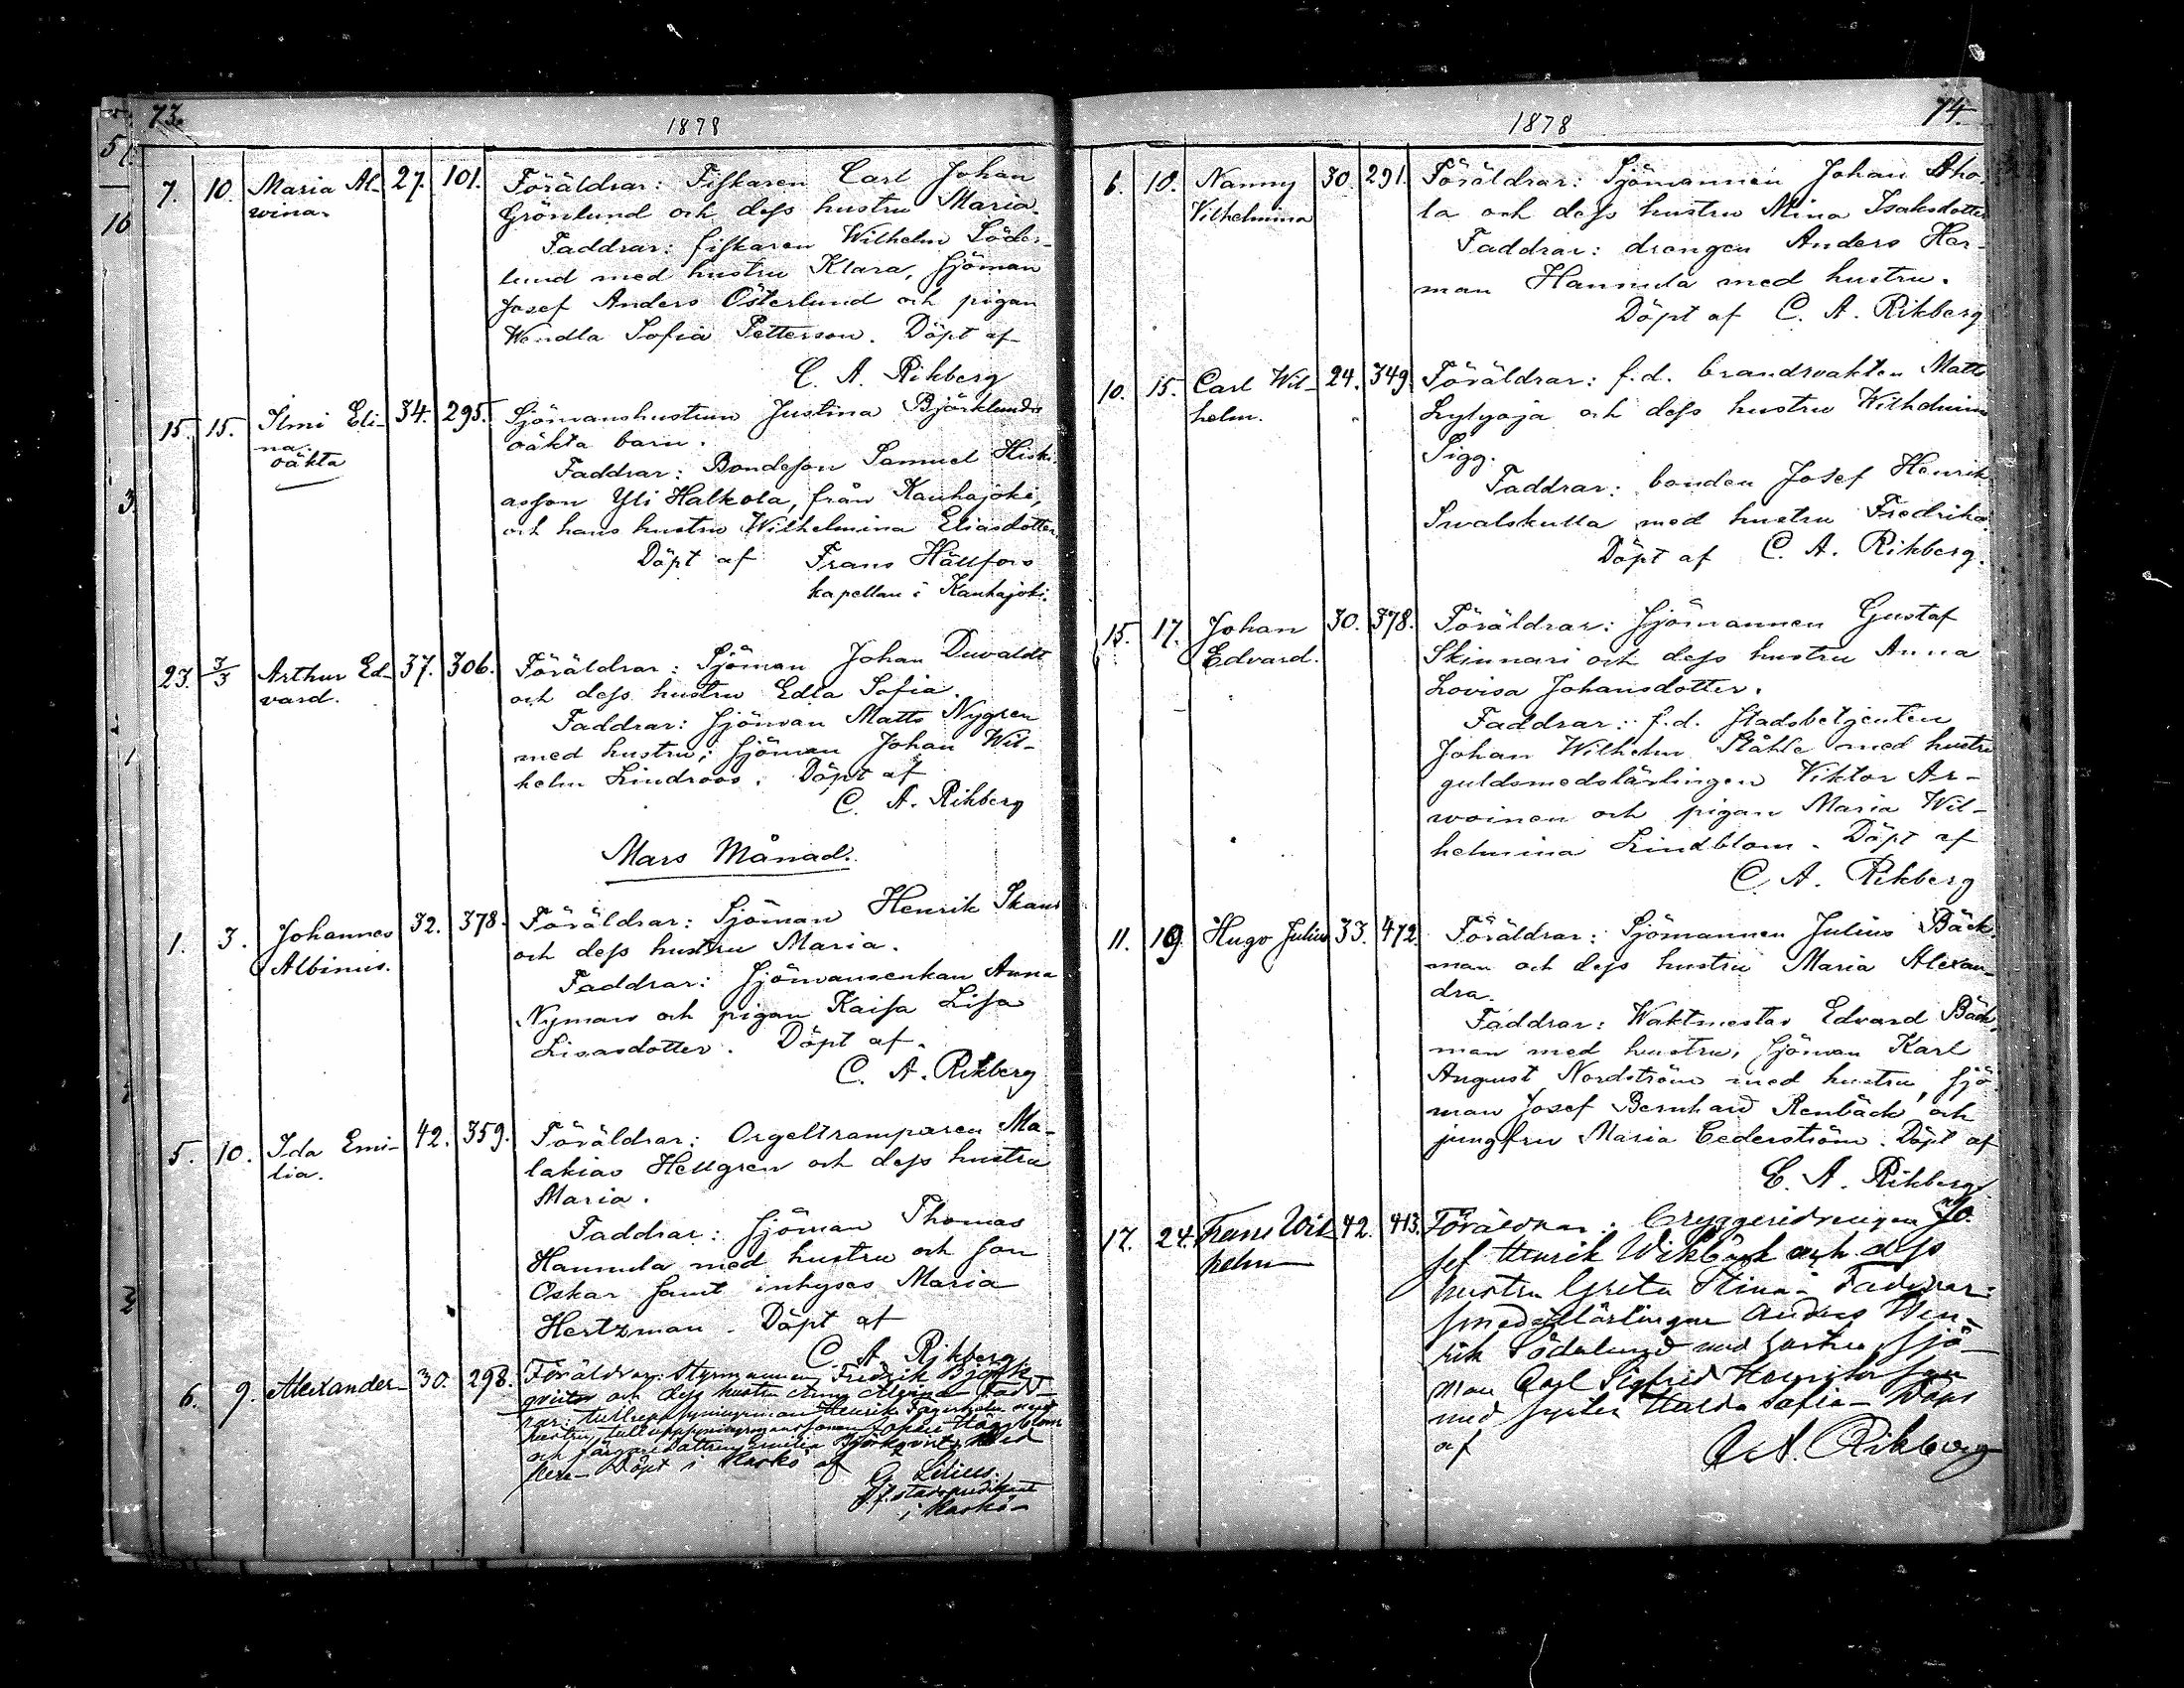 73.
1878
7. 10. Maria Al- 27. 101. Föräldrar: Fiskaren Carl Johan
wina. Grönlund och dess hustru Maria.
Faddrar: fiskaren Wilhelm Söder-
lund med hustru Klara, sjöman
Josef Anders Österlund och pigan
Wendla Sofia Petterson. Döpt af
C. A. Rikberg
15. 15. Ilmi Eli- 34. 295. Sjömanshustrun Justina Björklunds
na oäkta barn.
oäkta
Faddrar: Bondeson Samuel Hiski-
asson Yli Halkola, från Kauhajoki,
och hans hustru Wilhelmina Eliasdotter
Döpt af Frans Hällfors
kapellan i Kauhajoki.
23. 3/3 Arthur Ed- 37. 306. Föräldrar: Sjöman Johan Duvaldt
vard. och dess hustru Edla Sofia.
Faddrar: sjöman Matts Nygren
med hustru; sjöman Johan Wil-
helm Lindroos. Döpt af
C. A. Rikberg
Mars Månad.
1. 3. Johannes 32. 378. Föräldrar: Sjöman Henrik Skans
Albinus. och dess hustru Maria.
Faddrar: sjömansenkan Anna
Nyman och pigan Kaisa Lisa
Lisasdotter. Döpt af
C. A. Rikberg
5. 10. Ida Emi- 42. 359. Föräldrar: Orgeltramparen Ma-
lia. lakias Hellgren och dess hustru
Maria.
Faddrar: sjöman Thomas
Hannula med hustru och son
Oskar samt inhyses Maria
Hertzman. Döpt af
C. A. Rikberg
6. 9. Alexander 30. 298. Föräldrar: Styrmannen Fredrik Björk-
qvist och dess hustru Fadd-
rar: Henrik Fagerholm med
hustru, Häggblom
och Emilia Björkqvist
Döpt i Kaskö af
G. Lilius.
stadspredikant
i Kaskö
74.
1878
6. 10. Nanny 30. 291. Föräldrar: Sjömannen Johan Aho-
Vilhelmina la och dess hustru Mina Isaksdotter
Faddrar: drengen Anders Her-
man Hannula med hustru.
Döpt af C. A. Rikberg
10. 15. Carl Wil- 24. 349. Föräldrar: f.d. brandvakten Matts
helm. Lylyoja och dess hustru Wilhelmina
Sigg.
Faddrar: bonden Josef Henrik
Svalskulla med hustru Fredrika.
Döpt af C. A. Rikberg.
15. 17. Johan 30. 378. Föräldrar: Sjömannen Gustaf
Edvard. Skinnari och dess hustru Anna
Lovisa Johansdotter.
Faddrar: f.d. stadsbetjenten
Johan Wilhelm Ståhle med hustru
guldsmedslärlingen Viktor Ar-
woinen och pigan Maria Wil-
helmina Lindblom. Döpt af
C. A. Rikberg
11. 19. Hugo Julius 33. 472. Föräldrar: Sjömannen Julius Bäck-
man och dess hustru Maria Alexan-
dra.
Faddrar: Waktmestar Edvard Bäck-
man med hustru, sjöman Karl
August Nordström med hustru, sjö-
man Josef Bernhard Renbäck och
jungfru Maria Cederström. Döpt af
C. A. Rikberg
17. 24. Frans Wil- 42. 413. Föräldrar: Bryggeridrengen Jo-
helm sef Henrik Wikbäck och dess
hustru Greta Stina. Faddrar:
smedslärlingen Anders Hen-
rik Söderlund med hustru, sjö-
man Carl Sigfrid Henriksson
med syster Hulda Sofia. Döpt
af C. A. Rikberg